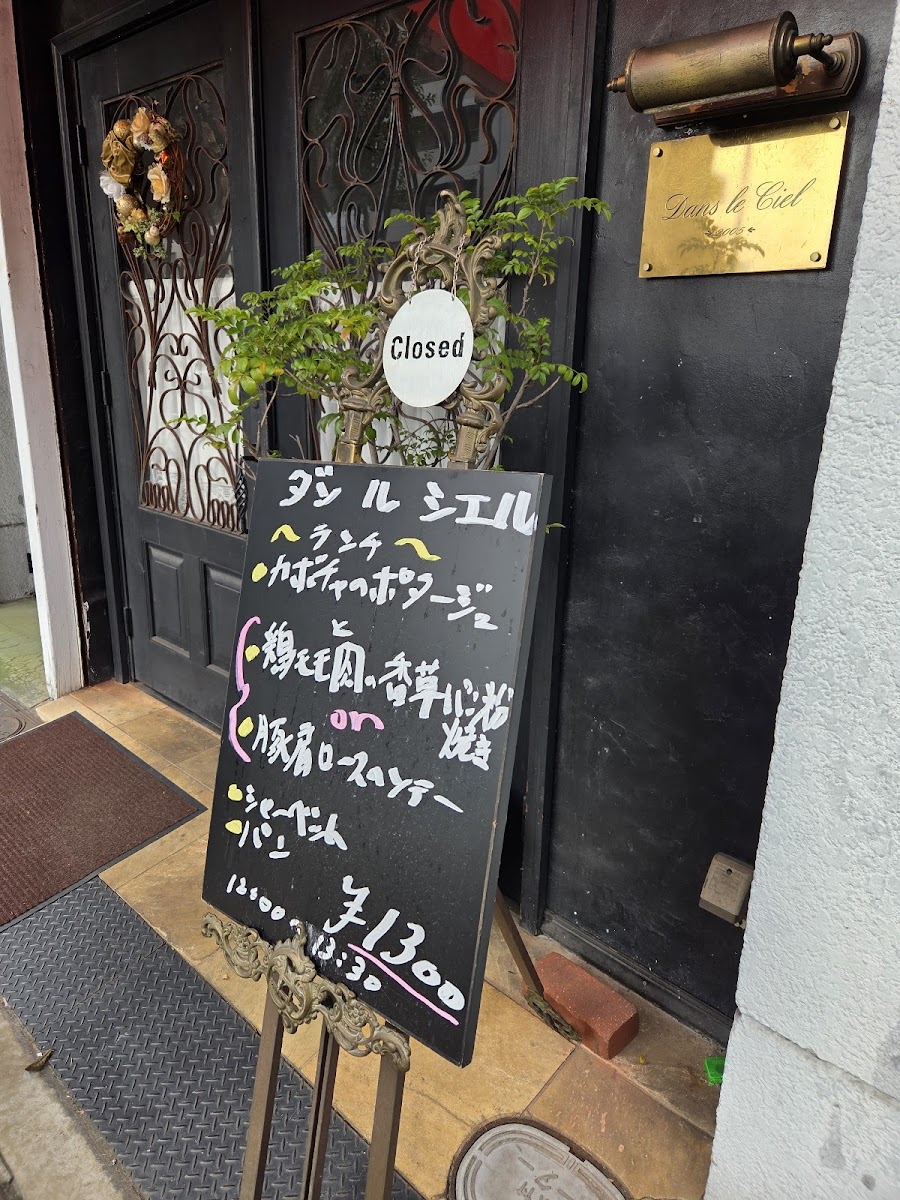 Dans le Ciel
2005
Closed
ダン ル シエル
~ランチ~
・カボチャのポタージュ
と
・鶏モモ肉の香草パン粉
焼き
on
・豚肩ロースのソテー
・シャーベット
・パン
12:00~
13:30
¥1300